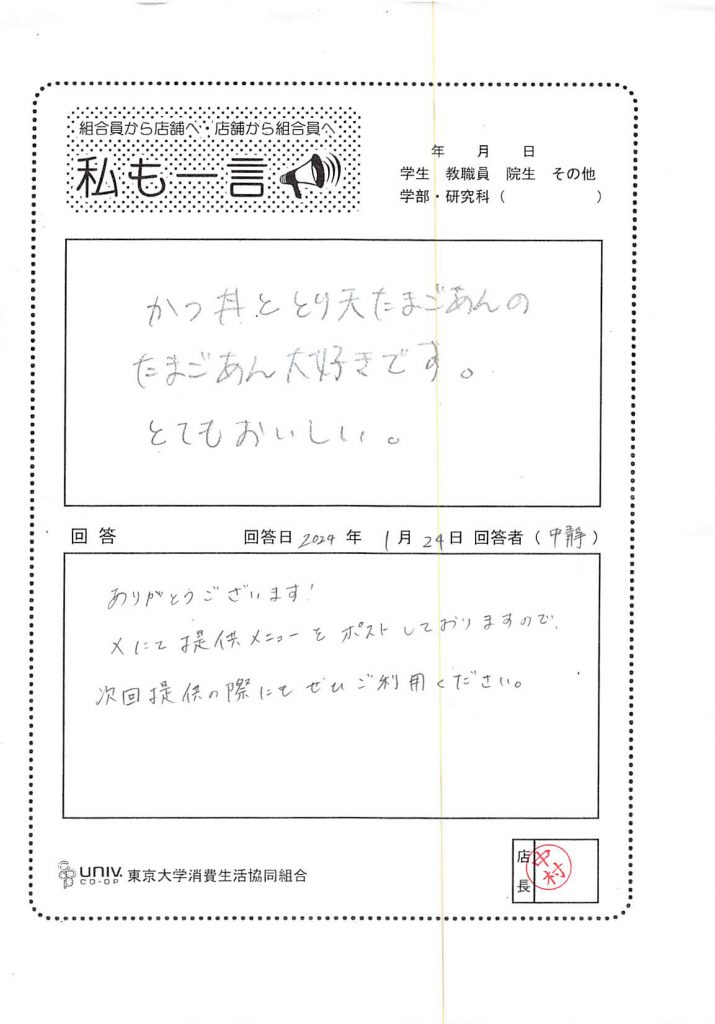 組合員から店舗へ・店舗から組合員へ
私も一言
年 月 日
学生 教職員 院生 その他
学部・研究科（ ）
かつ丼ととり天たまごあんの
たまごあん大好きです。
とてもおいしい。
回答 回答日 2024 年 1 月 24 日 回答者（中静）
ありがとうございます!
Xにて提供メニューをポストしておりますので、
次回提供の際にもぜひご利用ください。
UNIV. CO-OP 東京大学消費生活協同組合
店長 中村